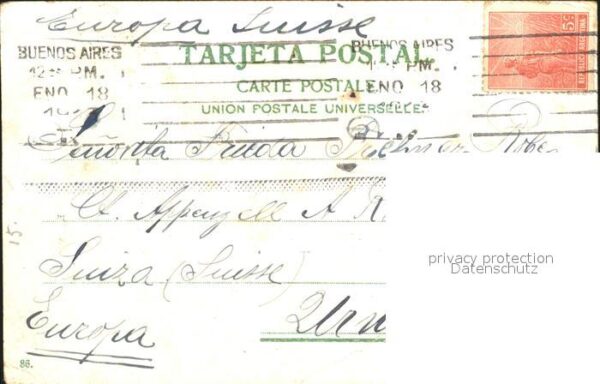 Europa Suisse
BUENOS AIRES
12 PM.
ENO 18
TARJETA POSTAL
CARTE POSTALE
UNION POSTALE UNIVERSELLE
BUENOS AIRES
PM.
ENO 18
5c
Señorita Frieda
Ct. Appenzell A R.
Suiza (Suisse)
Europa
15.
86.
privacy protection
Datenschutz